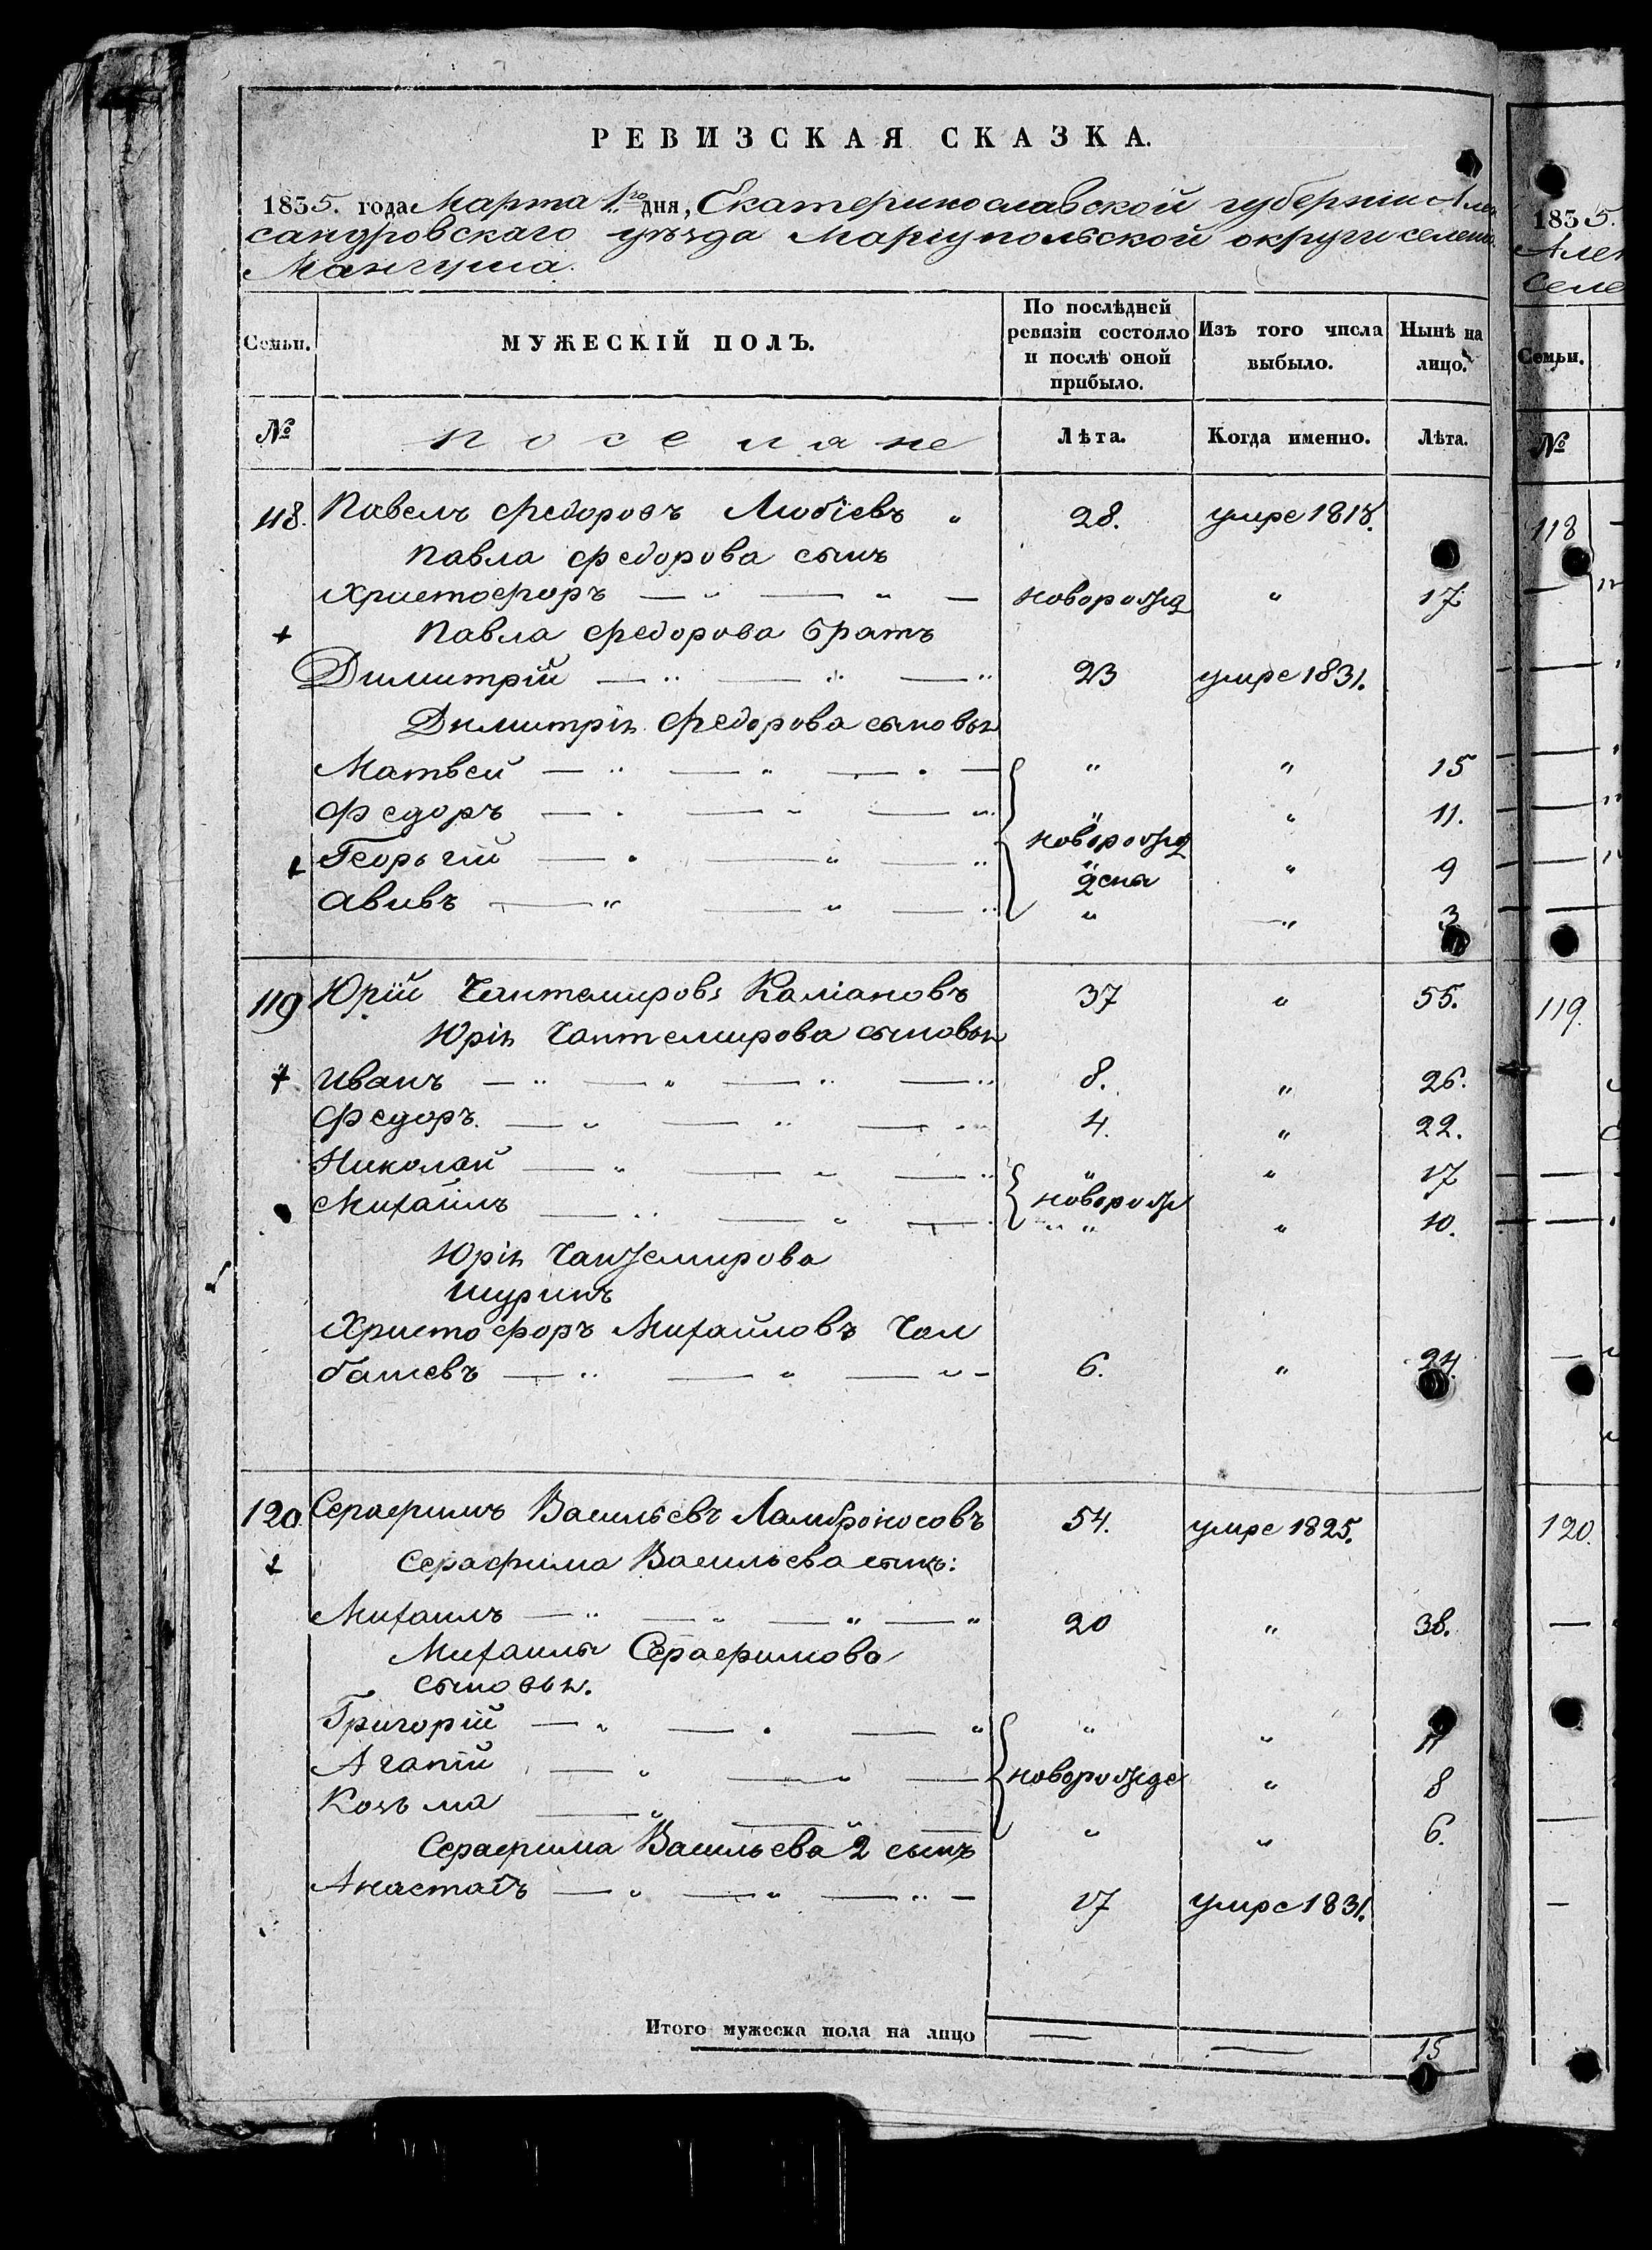 РЕВИЗСКАЯ СКАЗКА.
1835. года Марта 1го дня, Екатеринославской губерніи Алек
сандровскаго уѣзда Маріупольской округи селенія
Мангуша.
Семьи. МУЖЕСКІЙ ПОЛЪ. По послѣдней ревизіи состояло и послѣ оной прибыло. Изъ того числа выбыло. Нынѣ на лицо.
№ поселяне Лѣта. Когда именно. Лѣта.
118. Павелъ Федоровъ Любіевъ " 28. умре 1818.
Павла Федорова сынъ
Христофоръ — " — " — новорожд " 17
Павла Федорова братъ
Димитрій — " — " — " 23 умре 1831.
Димитрія Федорова сыновья
Матвей — " — " — " — " " 15
Федоръ — " — " — " " " 11.
новорожд
Георгій — " — " — " " " 9
Авивъ — " — " — " " — " 3
119 Юрій Чантемировъ Каліановъ 37 " 55.
Юрія Чантемирова сыновья
Иванъ — " — " — " — " 8. " 26.
Федоръ. — " — " — " 4. " 22.
Николай — " — " — " " " 17
новорож
Михаилъ — " — " — " " " 10.
Юрія Чантемирова
шуринъ
Христофоръ Михайловъ Чал
башевъ — " — " — " - 6. " 24.
120. Серафимъ Васильевъ Ламброносовъ 54. умре 1825.
Серафима Васильева сынъ:
Михаилъ — " — " — " — " 20 " 38.
Михаила Серафимова
сыновья.
Григорій — " — " — " " " 11
Агапій — " — " — новорожде " 8
Козьма — " — " — " " 6.
Серафима Васильева 2 сынъ
Анастасъ — " — " — " — 17 умре 1831.
Итого мужеска пола на лицо — — 15
1835.
Алек
Селе
Семьи.
№
118
119.
120.